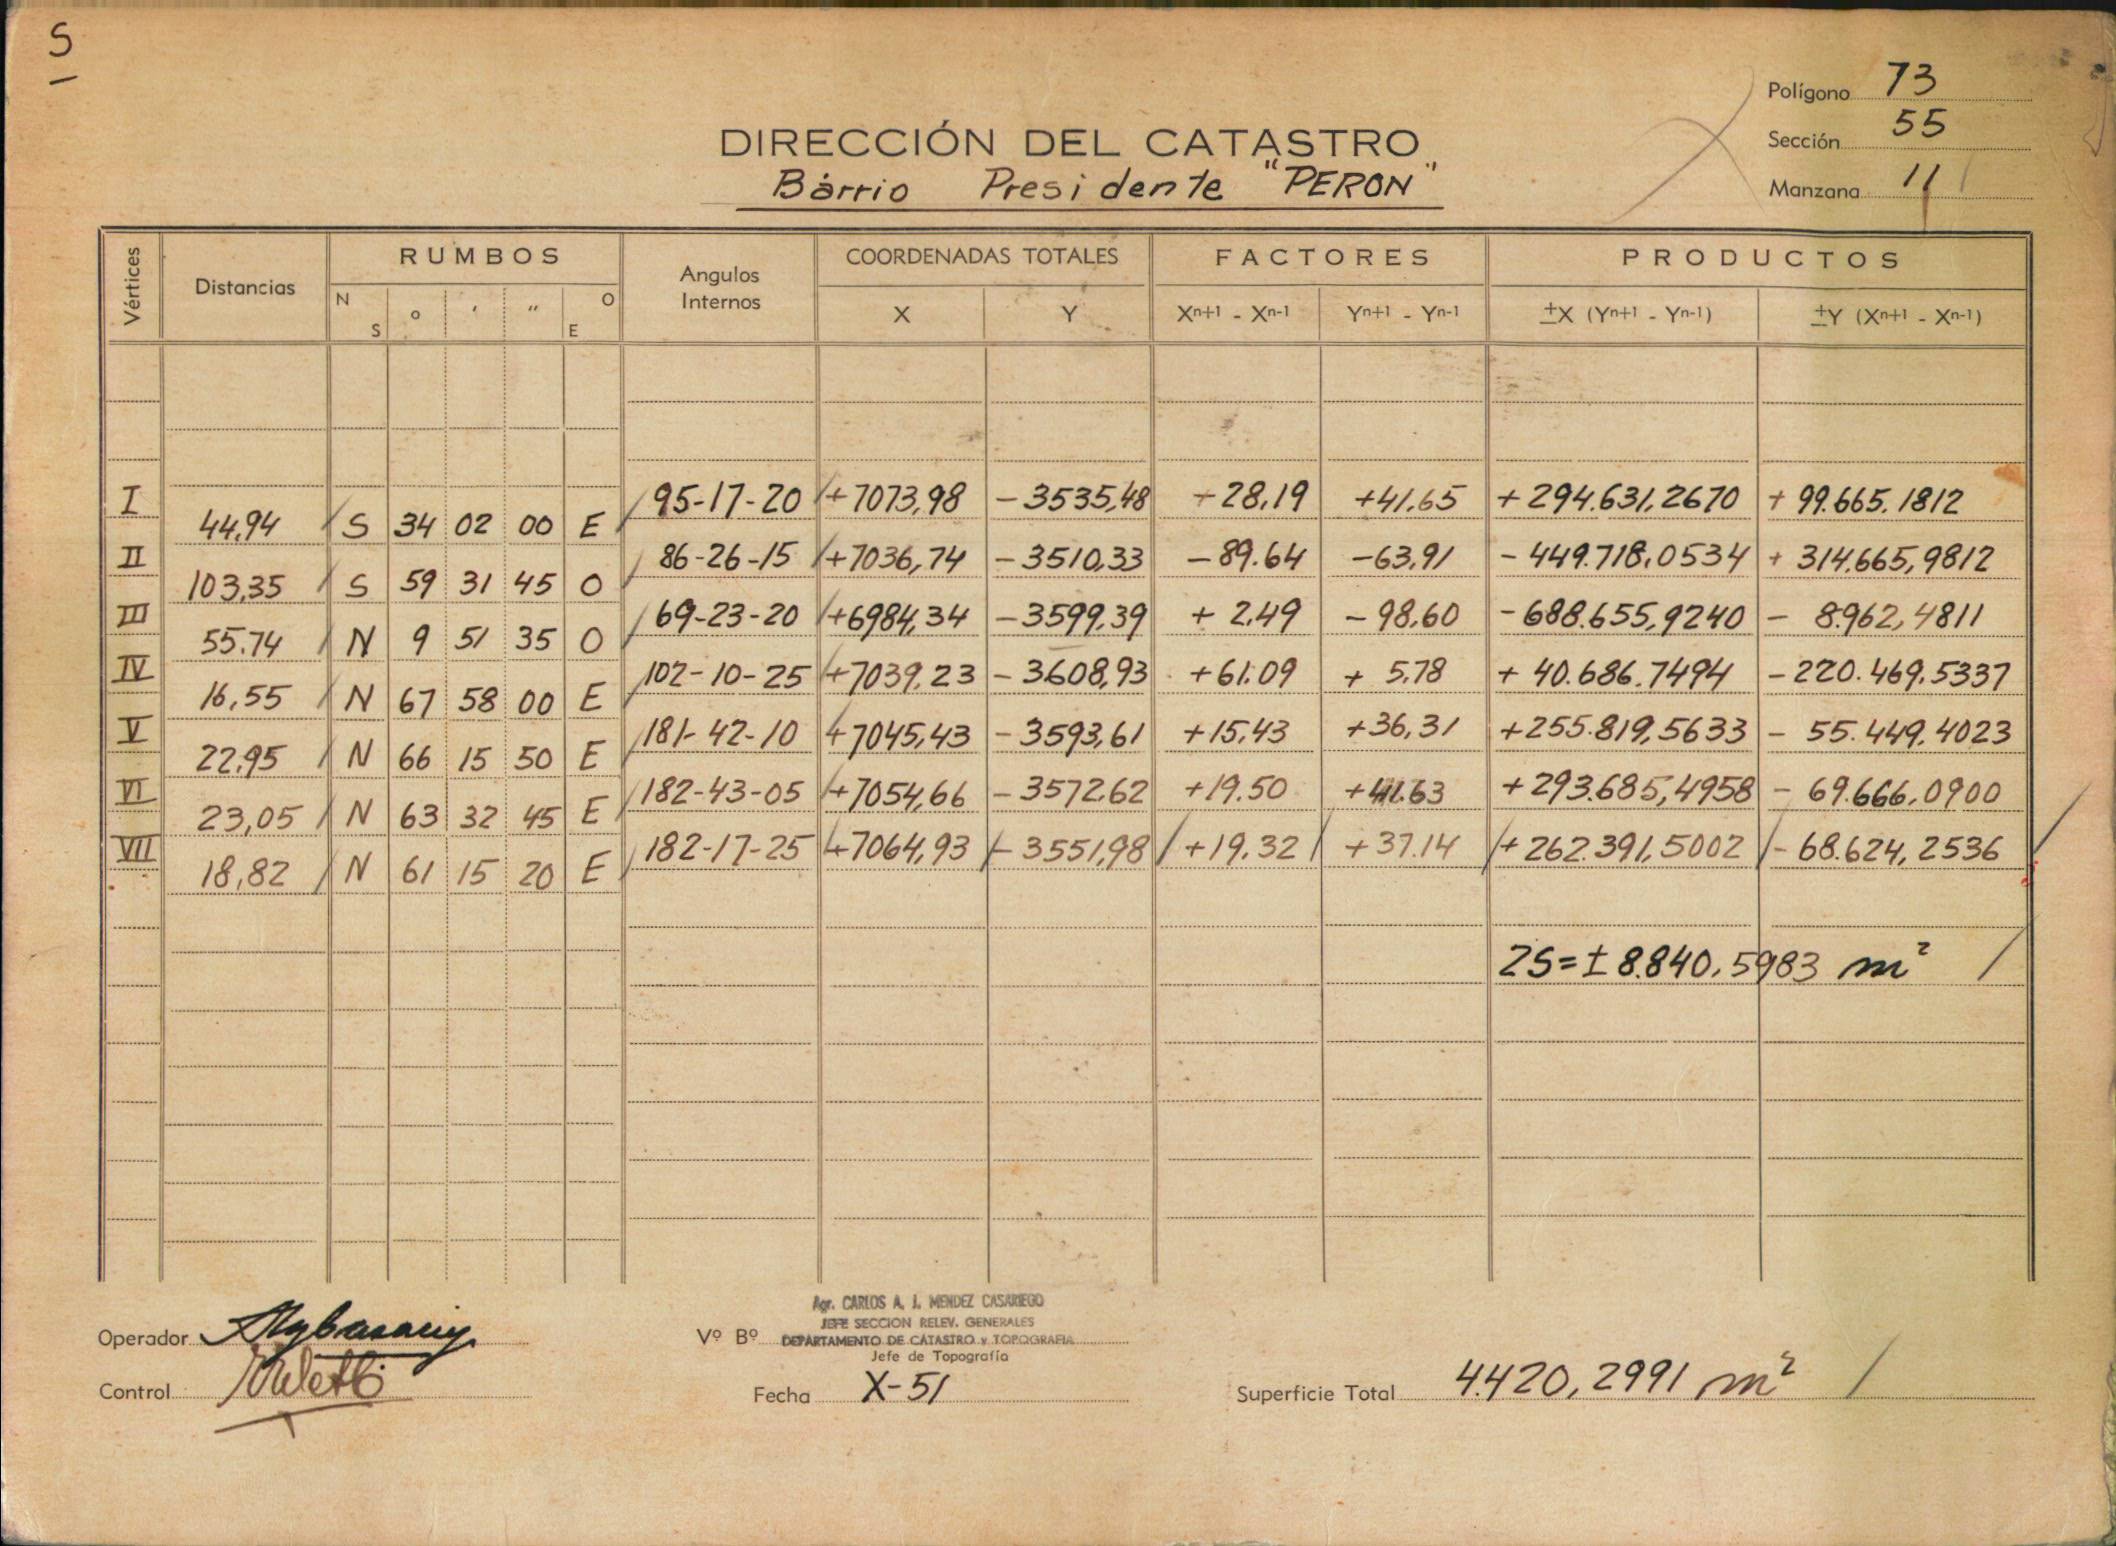 S
Polígono 73
Sección 55
Manzana 11
DIRECCIÓN DEL CATASTRO
Bárrio Presidente "PERON"
Vértices Distancias RUMBOS Angulos Internos COORDENADAS TOTALES FACTORES PRODUCTOS
N S ° ' " O E X Y Xn+1 - Xn-1 Yn+1 - Yn-1 ±X (Yn+1 - Yn-1) ±Y (Xn+1 - Xn-1)
I 95-17-20 +7073,98 -3535,48 +28,19 +41,65 +294.631,2670 +99.665.1812
44,94 S 34 02 00 E
II 86-26-15 +7036,74 -3510,33 -89.64 -63,91 -449.718,0534 +314.665,9812
103,35 S 59 31 45 O
III 69-23-20 +6984,34 -3599,39 +2,49 -98,60 -688.655,9240 -8.962,4811
55.74 N 9 51 35 O
IV 102-10-25 +7039,23 -3608,93 +61.09 +5,78 +40.686.7494 -220.469,5337
16,55 N 67 58 00 E
V 181-42-10 +7045,43 -3593,61 +15,43 +36,31 +255.819,5633 -55.449.4023
22,95 N 66 15 50 E
VI 182-43-05 +7054,66 -3572,62 +19.50 +41.63 +293.685,4958 -69.666,0900
23,05 N 63 32 45 E
VII 182-17-25 +7064,93 -3551,98 +19,32 +37.14 +262.391,5002 -68.624,2536
18,82 N 61 15 20 E
2S=± 8.840,5983 m²
Operador
Control
Vº Bº
Agr. CARLOS A. J. MENDEZ CASARIEGO
JEFE SECCION RELEV. GENERALES
DEPARTAMENTO DE CATASTRO y TOPOGRAFIA
Jefe de Topografía
Fecha X-51
Superficie Total 4.420,2991 m²